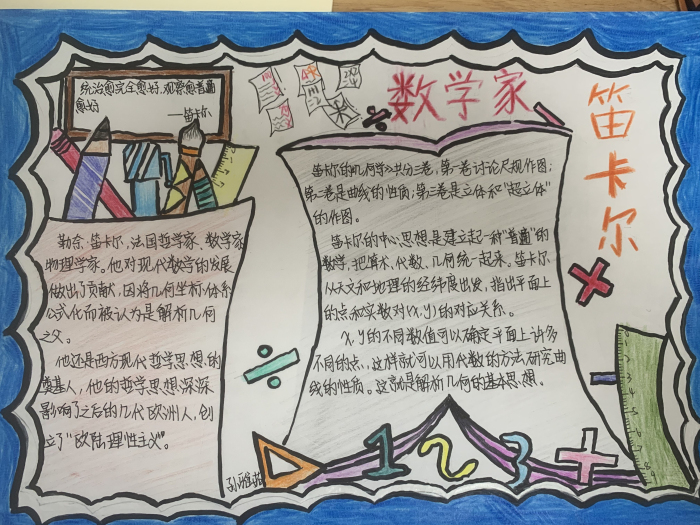 数学家
笛卡尔
统治愈完全愈好,观察愈普遍
愈好
——笛卡尔
勒奈·笛卡尔,法国哲学家、数学家
物理学家。他对现代数学的发展
做出了贡献,因将几何坐标体系
公式化而被认为是解析几何
之父。
他还是西方现代哲学思想的
奠基人,他的哲学思想深深
影响了之后的几代欧洲人,创
立了“欧陆理性主义”。
笛卡尔的《几何学》共分三卷,第一卷讨论尺规作图;
第二卷是曲线的性质;第三卷是立体和“超立体”
的作图。
笛卡尔的中心思想是建立起一种“普遍”的
数学,把算术、代数、几何统一起来。笛卡尔
从天文和地理的经纬度出发,指出平面上
的点和实数对(x,y)的对应关系。
x,y的不同数值可以确定平面上许多
不同的点,这样就可以用代数的方法研究曲
线的性质。这就是解析几何的基本思想。
1 2 3